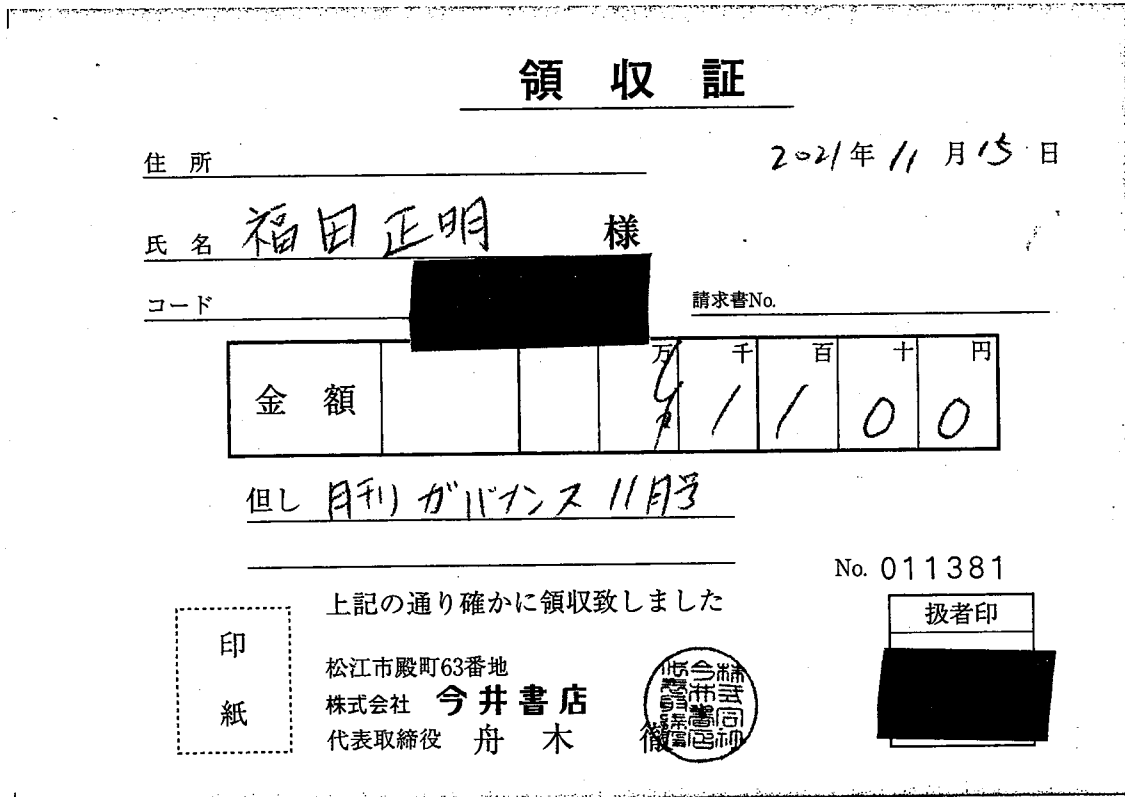 領収証
住所
2021年11月15日
氏名 福田正明 様
コード
請求書No.
金額 万 千 百 十 円
¥1100
但し 月刊ガバナンス11月号
No. 011381
上記の通り確かに領収致しました
扱者印
印紙
松江市殿町63番地
株式会社 今井書店
代表取締役 舟木 徹